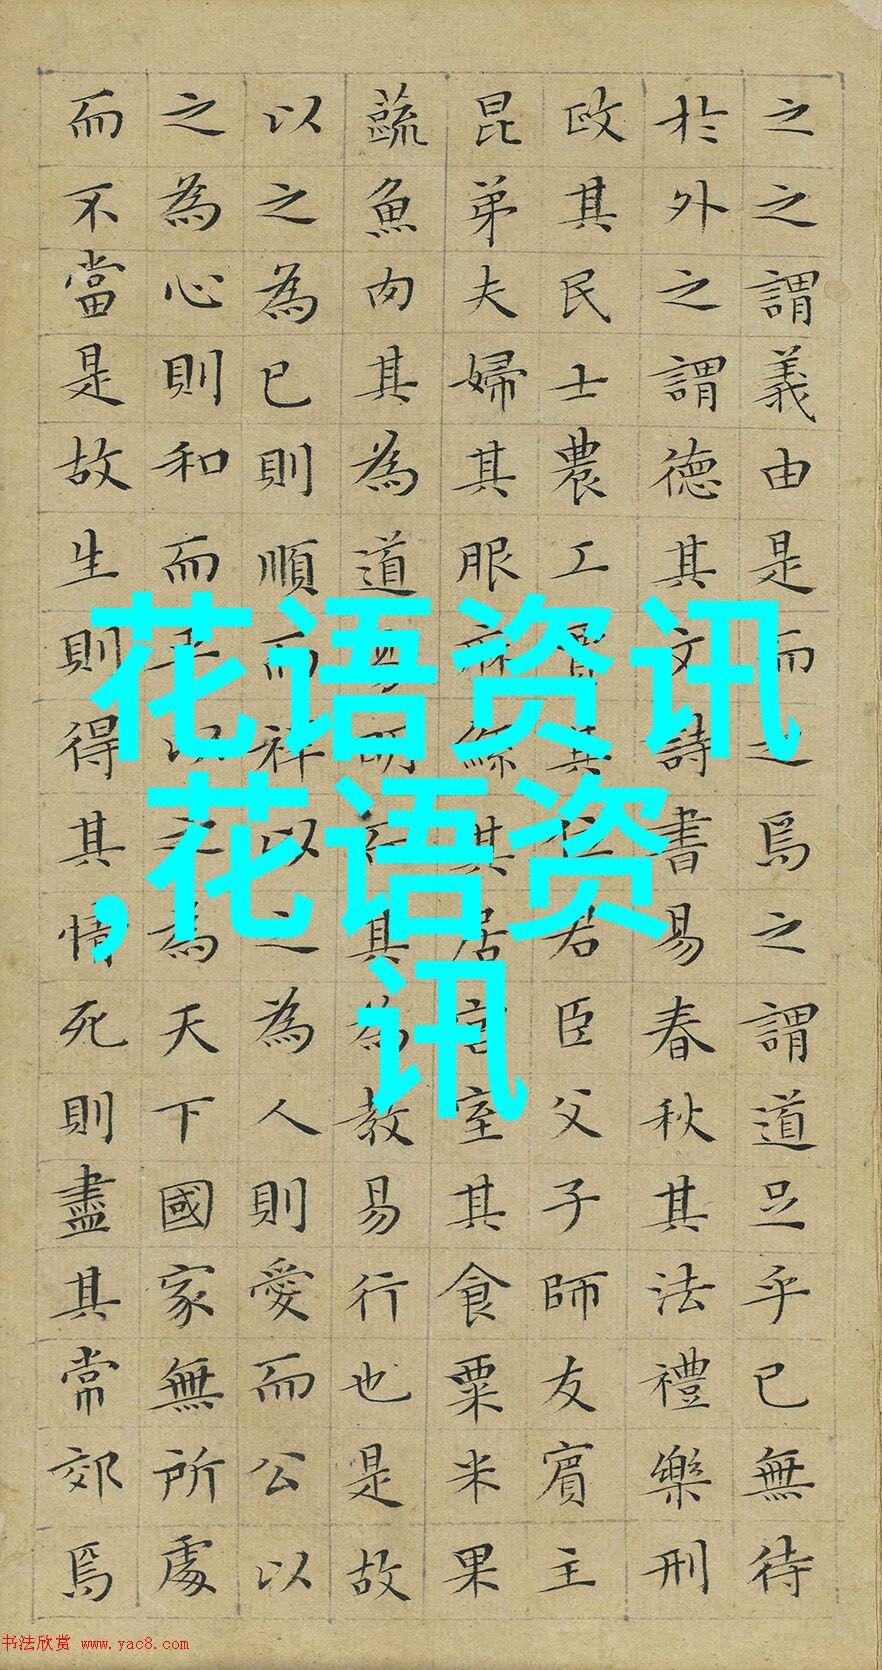 之之謂義由是而之焉之謂道足乎已無待
於外之謂德其文詩書易春秋其法禮樂刑
政其民士農工賈其位君臣父子師友賓主
昆弟夫婦其服麻絲其居宮室其食粟米果
蔬魚肉其為道易明而其為教易行也是故
以之為已則順而祥以之為人則愛而公以
之為心則和而平以之為天下國家無所處
而不當是故生則得其情死則盡其常郊焉
花语资讯
,花语资
讯
书法欣赏 www.yac8.com